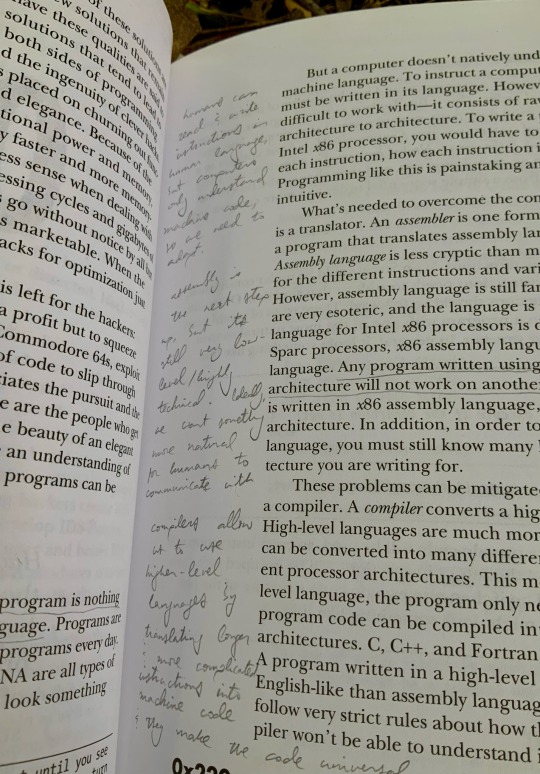 of these solutions
new solutions that
have these qualities are
solutions that tend to lead
both sides of programming
d the ingenuity of clever
s placed on churning out
d elegance. Because of the
tional power and memory
y faster and more memory
ess sense when dealing with
essing cycles and gigabytes of
s go without notice by all
s marketable. When the
acks for optimization just
is left for the hackers:
a profit but to squeeze
Commodore 64s, exploit
of code to slip through
ciates the pursuit and the
e are the people who get
e beauty of an elegant
e an understanding of
programs can be
program is nothing
guage. Programs are
programs every day.
NA are all types of
look something
t until you see
turn
humans can
read & write
instructions in
human language,
but computers
only understand
machine code,
so we need to
adapt.
assembly is
the next step
up, but its
still very low-
level/highly
technical. Ideally,
we want something
more natural
for humans to
communicate with
compilers allow
us to use
higher-level
languages by
translating longer
more complicated
instructions into
machine code
they make the code universal
But a computer doesn't natively und
machine language. To instruct a compu
must be written in its language. Howev
difficult to work with—it consists of ra
architecture to architecture. To write a
Intel x86 processor, you would have to
each instruction, how each instruction i
Programming like this is painstaking an
intuitive.
What's needed to overcome the con
is a translator. An assembler is one form
a program that translates assembly lan
Assembly language is less cryptic than m
for the different instructions and vari
However, assembly language is still far
are very esoteric, and the language is
language for Intel x86 processors is d
Sparc processors, x86 assembly langu
language. Any program written using
architecture will not work on anothe
is written in x86 assembly language,
architecture. In addition, in order to
language, you must still know many
tecture you are writing for.
These problems can be mitigate
a compiler. A compiler converts a hig
High-level languages are much mor
can be converted into many differe
ent processor architectures. This m
level language, the program only ne
program code can be compiled in
architectures. C, C++, and Fortran
A program written in a high-level
English-like than assembly languag
follow very strict rules about how th
piler won't be able to understand i